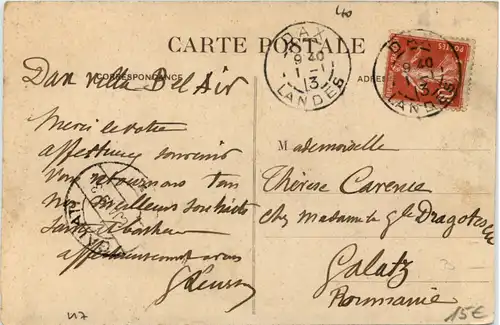 40
CARTE POSTALE
CORRESPONDANCE
ADRESSE
DAX
9 40
1 - 1
13
LANDES
DAX
9 40
1 - 1
13
LANDES
Dax villa Bel Air
Merci de votre
affectueux souvenir
Vous retournons tous
nos meilleurs souhaits
Santé bonheur
affectueusement à vous
Mademoiselle
Thérèse Carence
chez Madame le Gle
Galatz
Roumanie
117
15€